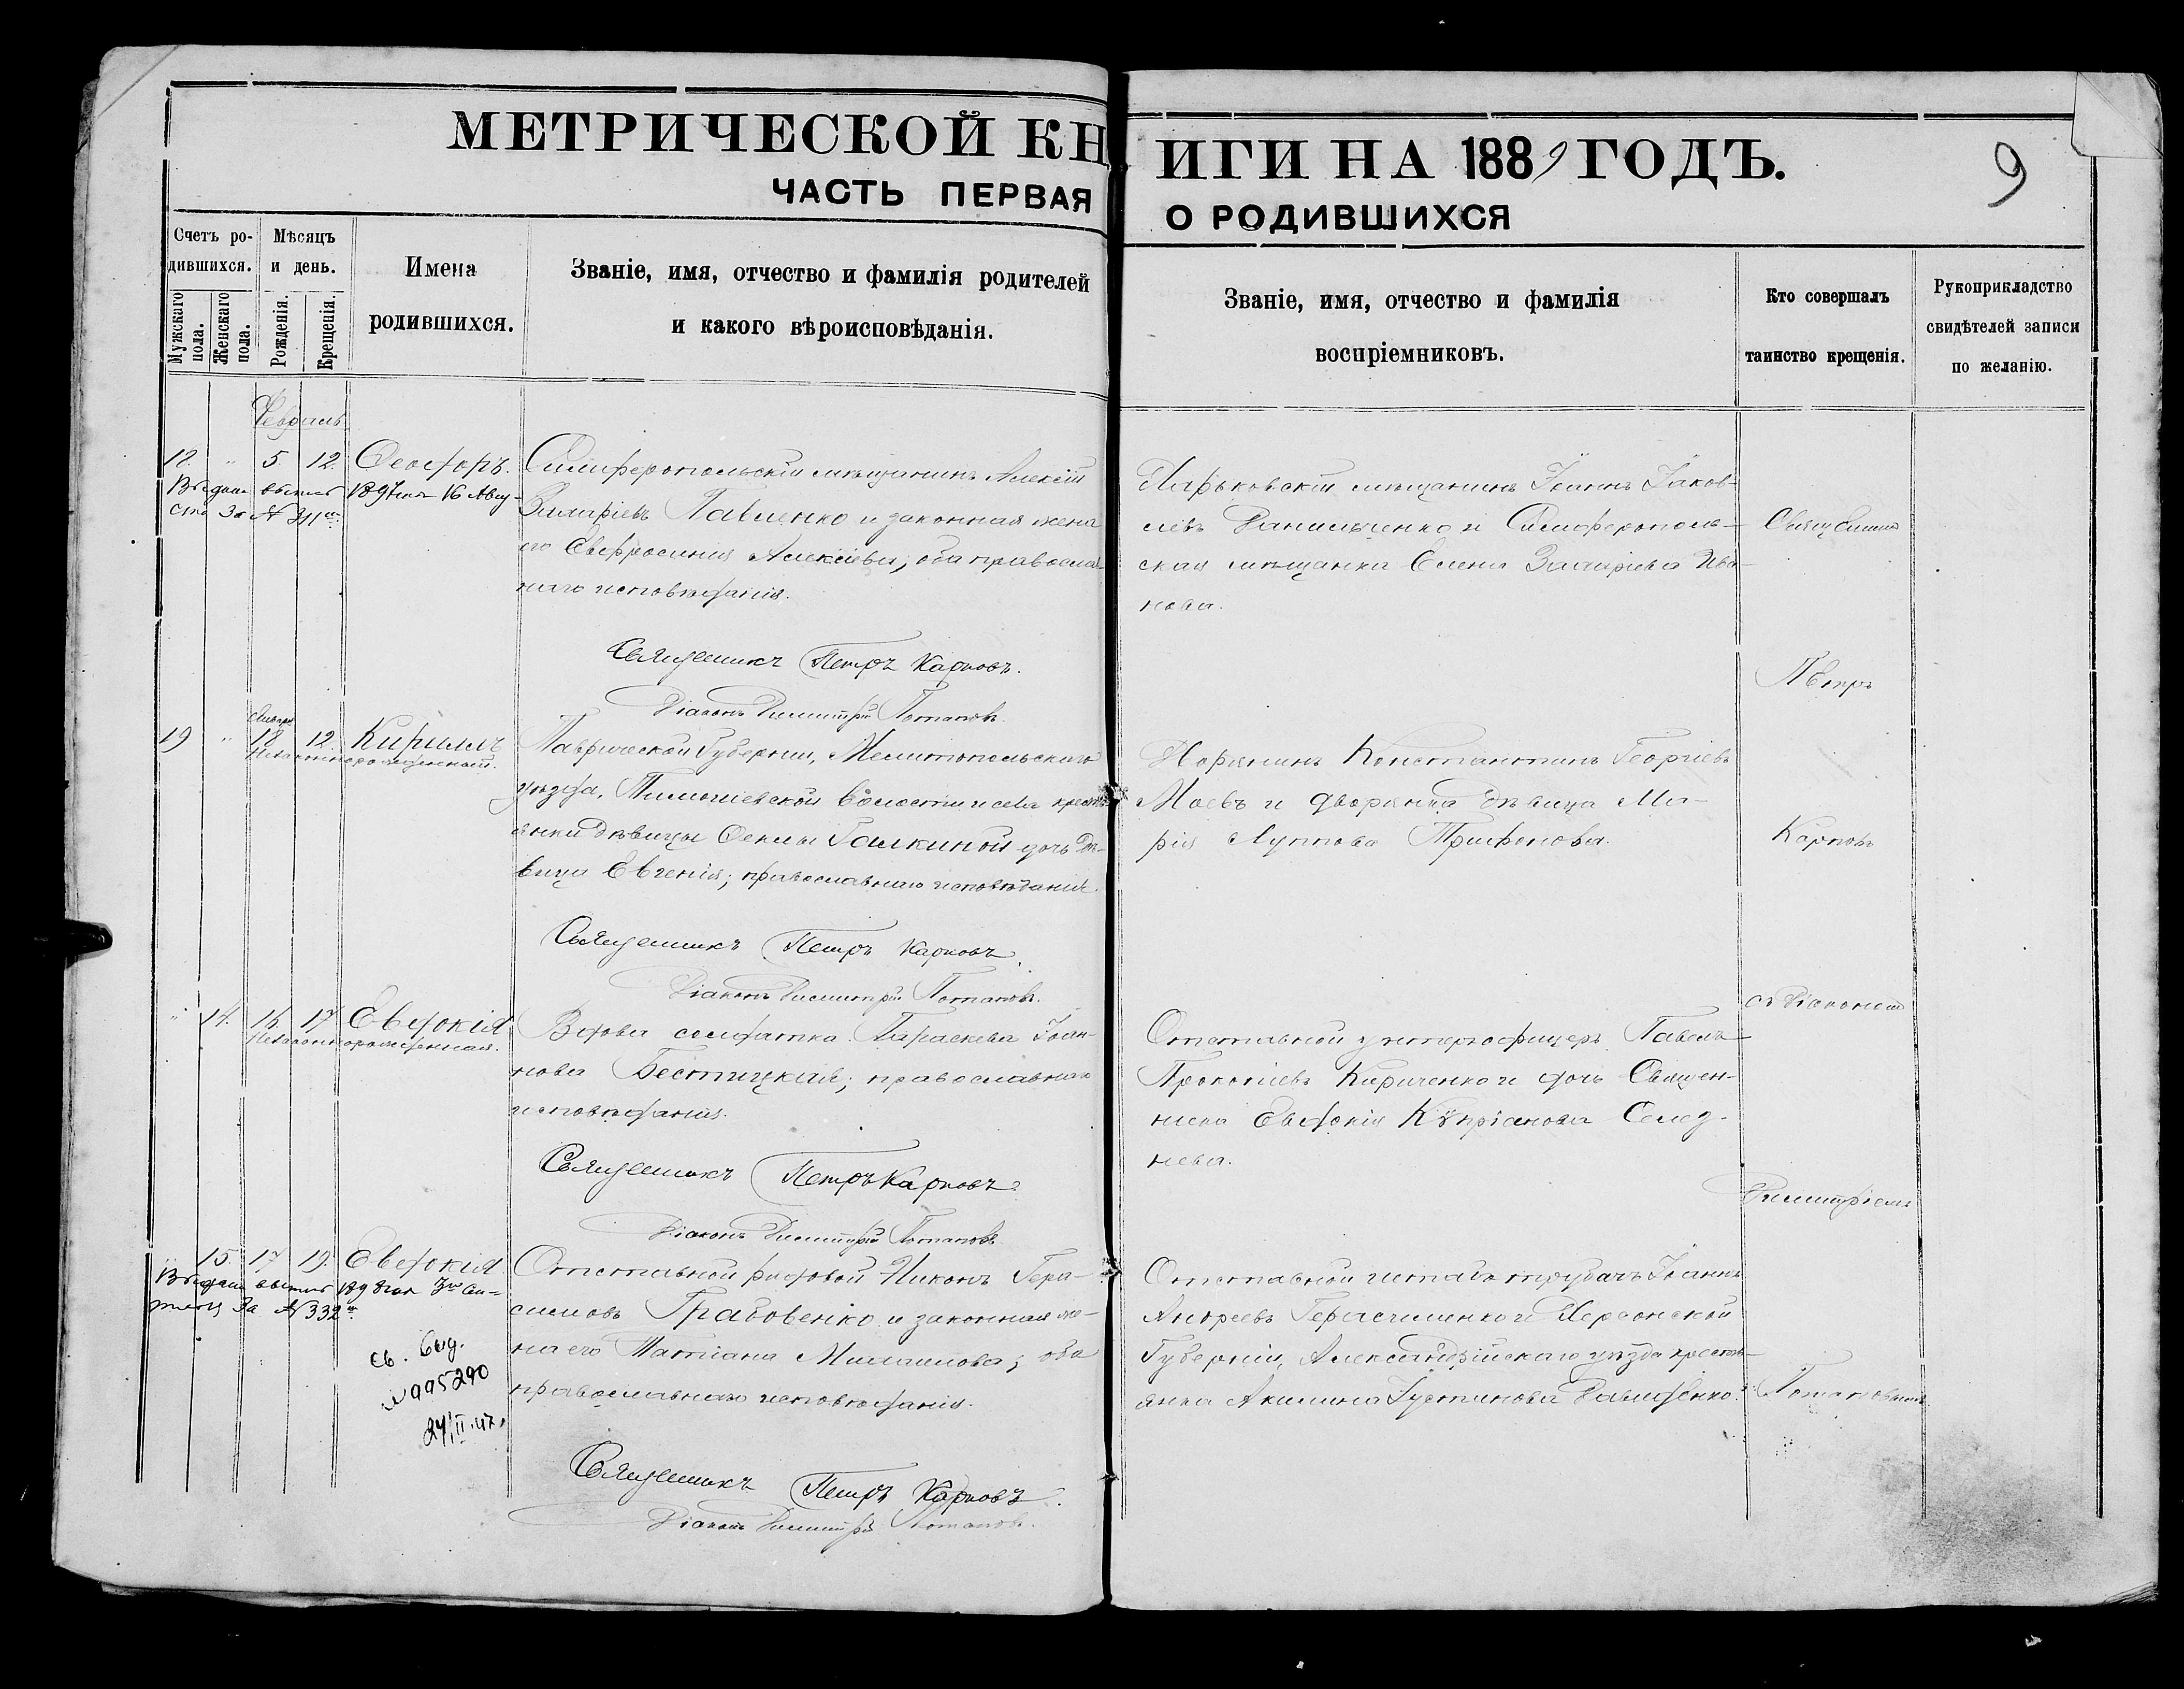 МЕТРИЧЕСКОЙ КНИГИ НА 1889 ГОДЪ.
9
ЧАСТЬ ПЕРВАЯ О РОДИВШИХСЯ
Счетъ ро-
дившихся.
Мужскаго
пола.
Женскаго
пола.
Мѣсяцъ
и день.
Рожденія.
Крещенія.
Имена
родившихся.
Званіе, имя, отчество и фамилія родителей
и какого вѣроисповѣданія.
Званіе, имя, отчество и фамилія
воспріемниковъ.
Кто совершалъ
таинство крещенія.
Рукоприкладство
свидѣтелей записи
по желанію.
Февраль
18. " 5 12. Ѳеодоръ.
1897 года 16 Авгу-
ста За № 311
Симферопольскій мѣщанинъ Алексій
Павленко и законная жена
его Евфросинія Алексіева; оба православ-
наго исповѣданія.
Священникъ Петръ Карповъ.
Діаконъ Димитрій Потаповъ.
Харьковскій мѣщанинъ Іоаннъ Іаков-
левъ Данильченко и Симферополь-
ская мѣщанка Елена Ива-
нова.
19 " Января 18 12. Кириллъ
Незаконнорожденный.
Таврической Губерніи, Мелитопольскаго
уѣзда, волости и села крестья-
янки дѣвицы Ѳеклы Галкиной дочь дѣ-
вица Евгенія; православнаго исповѣданія.
Священникъ Петръ Карповъ.
Діаконъ Димитрій Потаповъ.
Константинъ Георгіевъ
и дворянка дѣвица Ма-
рія Луппова Трифонова.
" 14. 16. 17 Евдокія
Незаконнорожденная.
Вдова солдатка Параскева Іоан-
нова Бестицкая; православнаго
исповѣданія.
Священникъ Петръ Карповъ.
Діаконъ Димитрій Потаповъ.
Отставной унтерофицеръ Павелъ
Прокопіевъ Кириченко и дочь Священ-
ника Евдокія Кѵпріанова Селез-
нева.
" 15 17 19. Евдокія
1898 года
За № 332
св. выд.
№ 995290
24/II.47.
Отставной рядовой Никонъ Гера-
симовъ Грабовенко и законная же-
на его Татіана Михаилова; оба
православнаго исповѣданія.
Священникъ Петръ Карповъ.
Діаконъ Димитрій Потаповъ.
Отставной штабъ трубачъ Іоаннъ
Андреевъ Герасименко и Херсонской
Губерніи, Александрійскаго уѣзда крестья-
янка Акилина Іустинова Давиденко.
Священникъ
Петръ
Карповъ
съ Діакономъ
Димитріемъ
Потаповымъ.